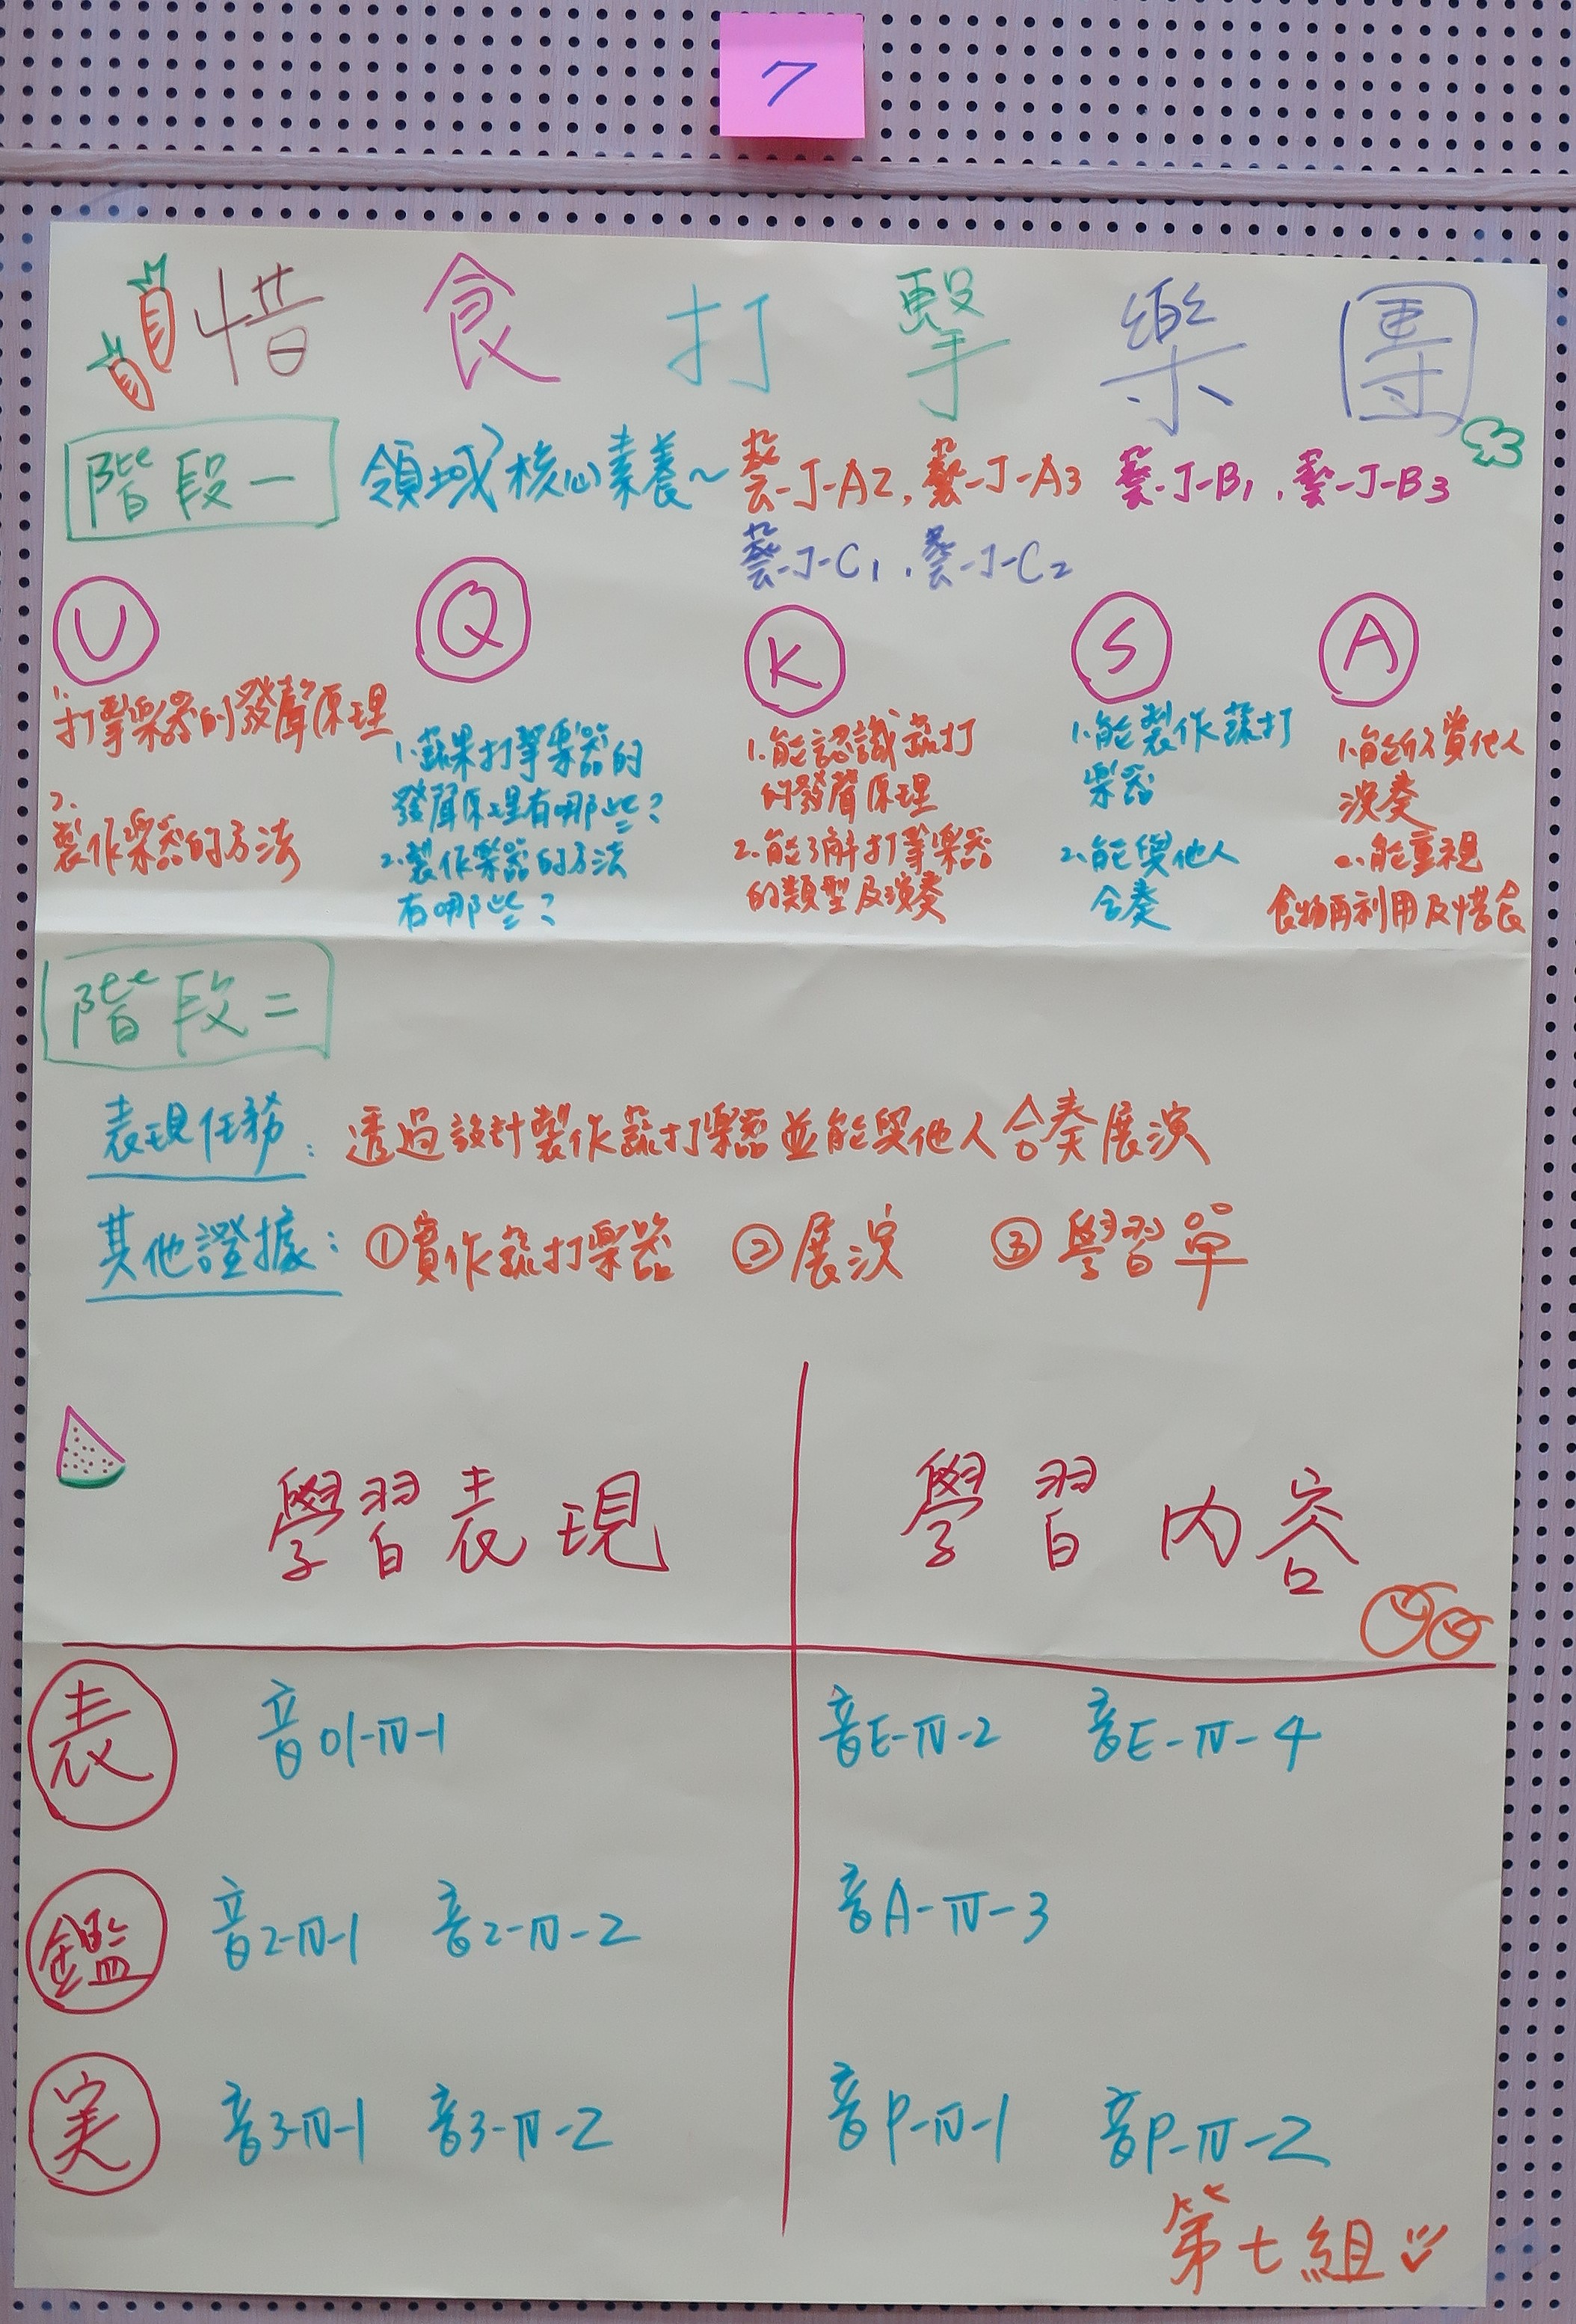 7
惜食打擊樂團
階段一
領域核心素養~ 藝-J-A2, 藝-J-A3 藝-J-B1, 藝-J-B3
藝-J-C1, 藝-J-C2
U
1.打擊樂器的發聲原理
2.製作樂器的方法
Q
1.蔬果打擊樂器的
發聲原理有哪些?
2.製作樂器的方法
有哪些?
K
1.能認識蔬打
的發聲原理
2.能了解打擊樂器
的類型及演奏
S
1.能製作蔬打
樂器
2.能與他人
合奏
A
1.能欣賞他人
演奏
2.能重視
食物再利用及惜食
階段二
表現任務: 透過設計製作蔬打樂器並能與他人合奏展演
其他證據: ①實作蔬打樂器 ②展演 ③學習單
學習表現 學習內容
表 音01-IV-1 音E-IV-2 音E-IV-4
鑑 音2-IV-1 音2-IV-2 音A-IV-3
実 音3-IV-1 音3-IV-2 音P-IV-1 音P-IV-2
第七組